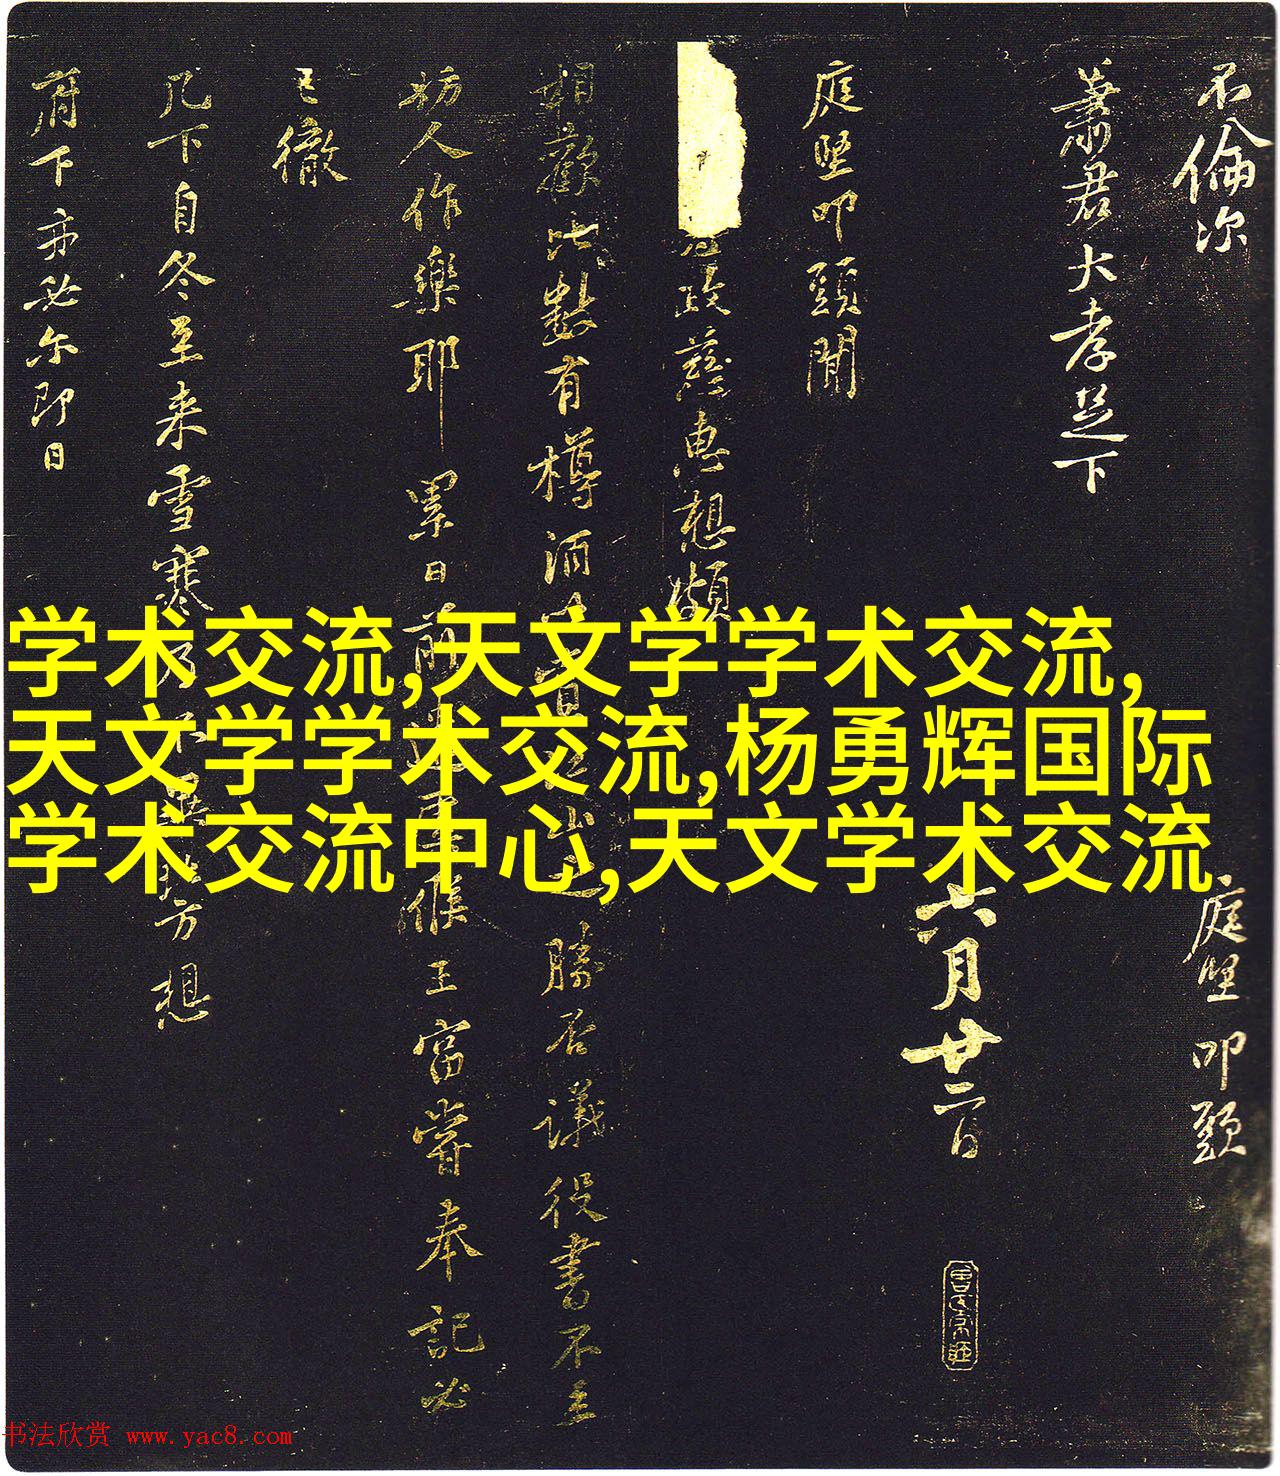 不倫次
庭堅叩頭
蕭君大孝足下
六月廿二日
庭堅叩頭聞
政慈惠想
相歡
有樽酒
勝否議役書不
人作樂耶累日前
王富嘗奉記必
徹
几下自冬至来雪寒
方想
府下亦必尔即日
学术交流,天文学学术交流,
天文学学术交流,杨勇辉国际
学术交流中心,天文学术交流
书法欣赏 www.yac8.com